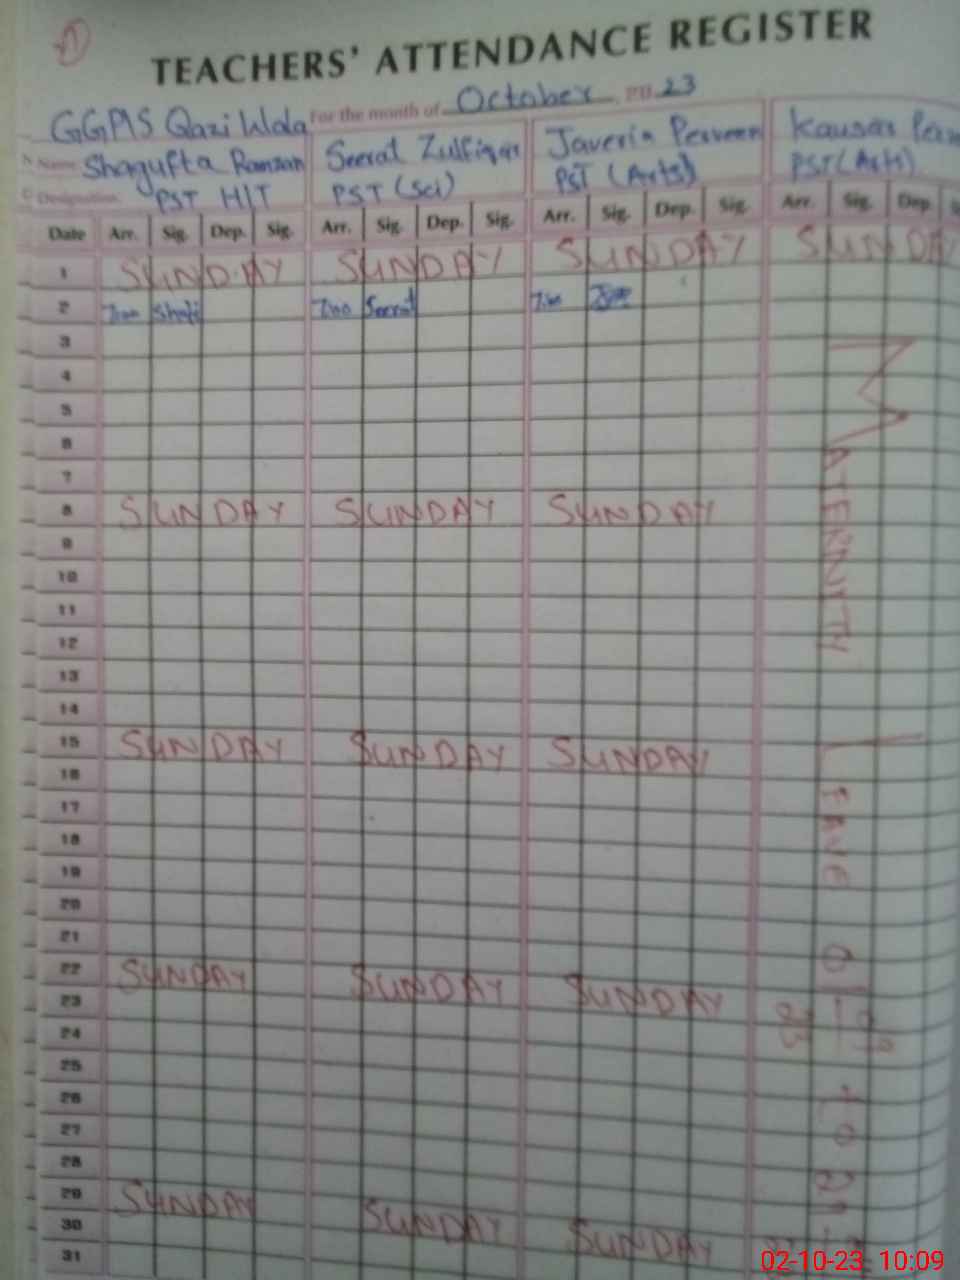 1
TEACHERS' ATTENDANCE REGISTER
GGPS Qazi Wala For the month of October 2023
Name Shagufta Ramzan Seerat Zulfiqar Javeria Perveen Kausar
Designation PST H/T PST (Sci) PST (Arts) PST (Arts)
Date Arr. Sig. Dep. Sig. Arr. Sig. Dep. Sig. Arr. Sig. Dep. Sig. Arr. Sig. Dep.
1 SUNDAY SUNDAY SUNDAY SUNDAY
2 7:00 7:00 Seerat 7:00
3
4
5
6
7
8 SUNDAY SUNDAY SUNDAY
9
10
11
12
13
14
15 SUNDAY SUNDAY SUNDAY
16
17
18
19
20
21
22 SUNDAY SUNDAY SUNDAY
23
24
25
26
27
28
29 SUNDAY SUNDAY SUNDAY
30
31
MATERNITY LEAVE
to
02-10-23 10:09